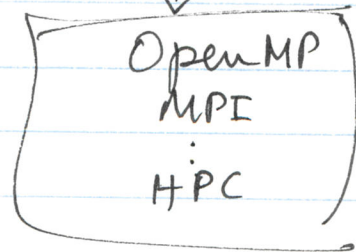 OpenMP
MPI
:
HPC